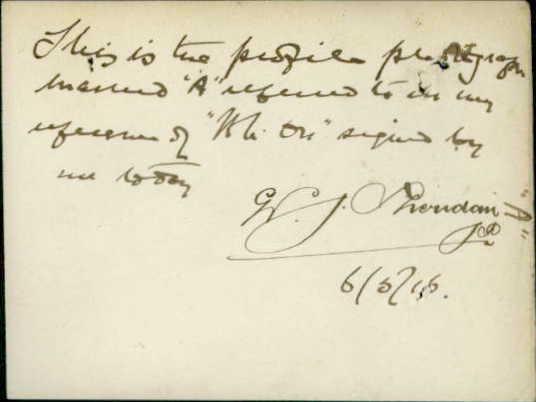 This is the profile photograph
marked "A" referred to in my
reference of "Ah. On" signed by
me today
W. J. Sheridan JP
"A"
6/5/16.